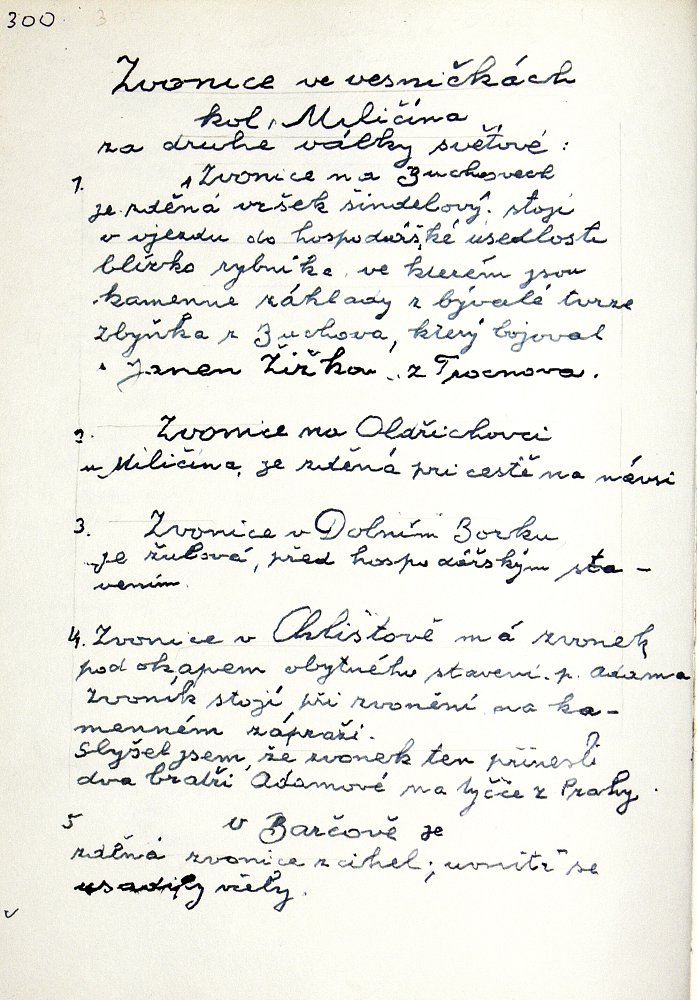 300
Zvonice ve vesničkách
kol. Miličína
za druhé války světové :
1. Zvonice na Zuchovech
je zděná vršek šindelový. stojí
v vjezdu do hospodářské usedlosti
blízko rybníka, ve kterém jsou
kamenne základy z bývalé tvrze
Zbyňka z Zuchova, který bojoval
s Janem Žižkou z Trocnova.
2. Zvonice na Oldřichovci
u Miličína, je zděná při cestě na návsi
3. Zvonice v Dolním Borku
je žulová, před hospodářským sta-
vením.
4. Zvonice v Chlístově má zvonek
pod okapem obytného stavení p. Adama
Zvoník stojí při zvonění na ka-
menném zápraží.
Slyšel jsem, že zvonek ten přinesli
dva bratři Adamové na tyčče z Prahy.
5 v Barčově je
zděná zvonice z cihel; uvnitř se
usadily včely.